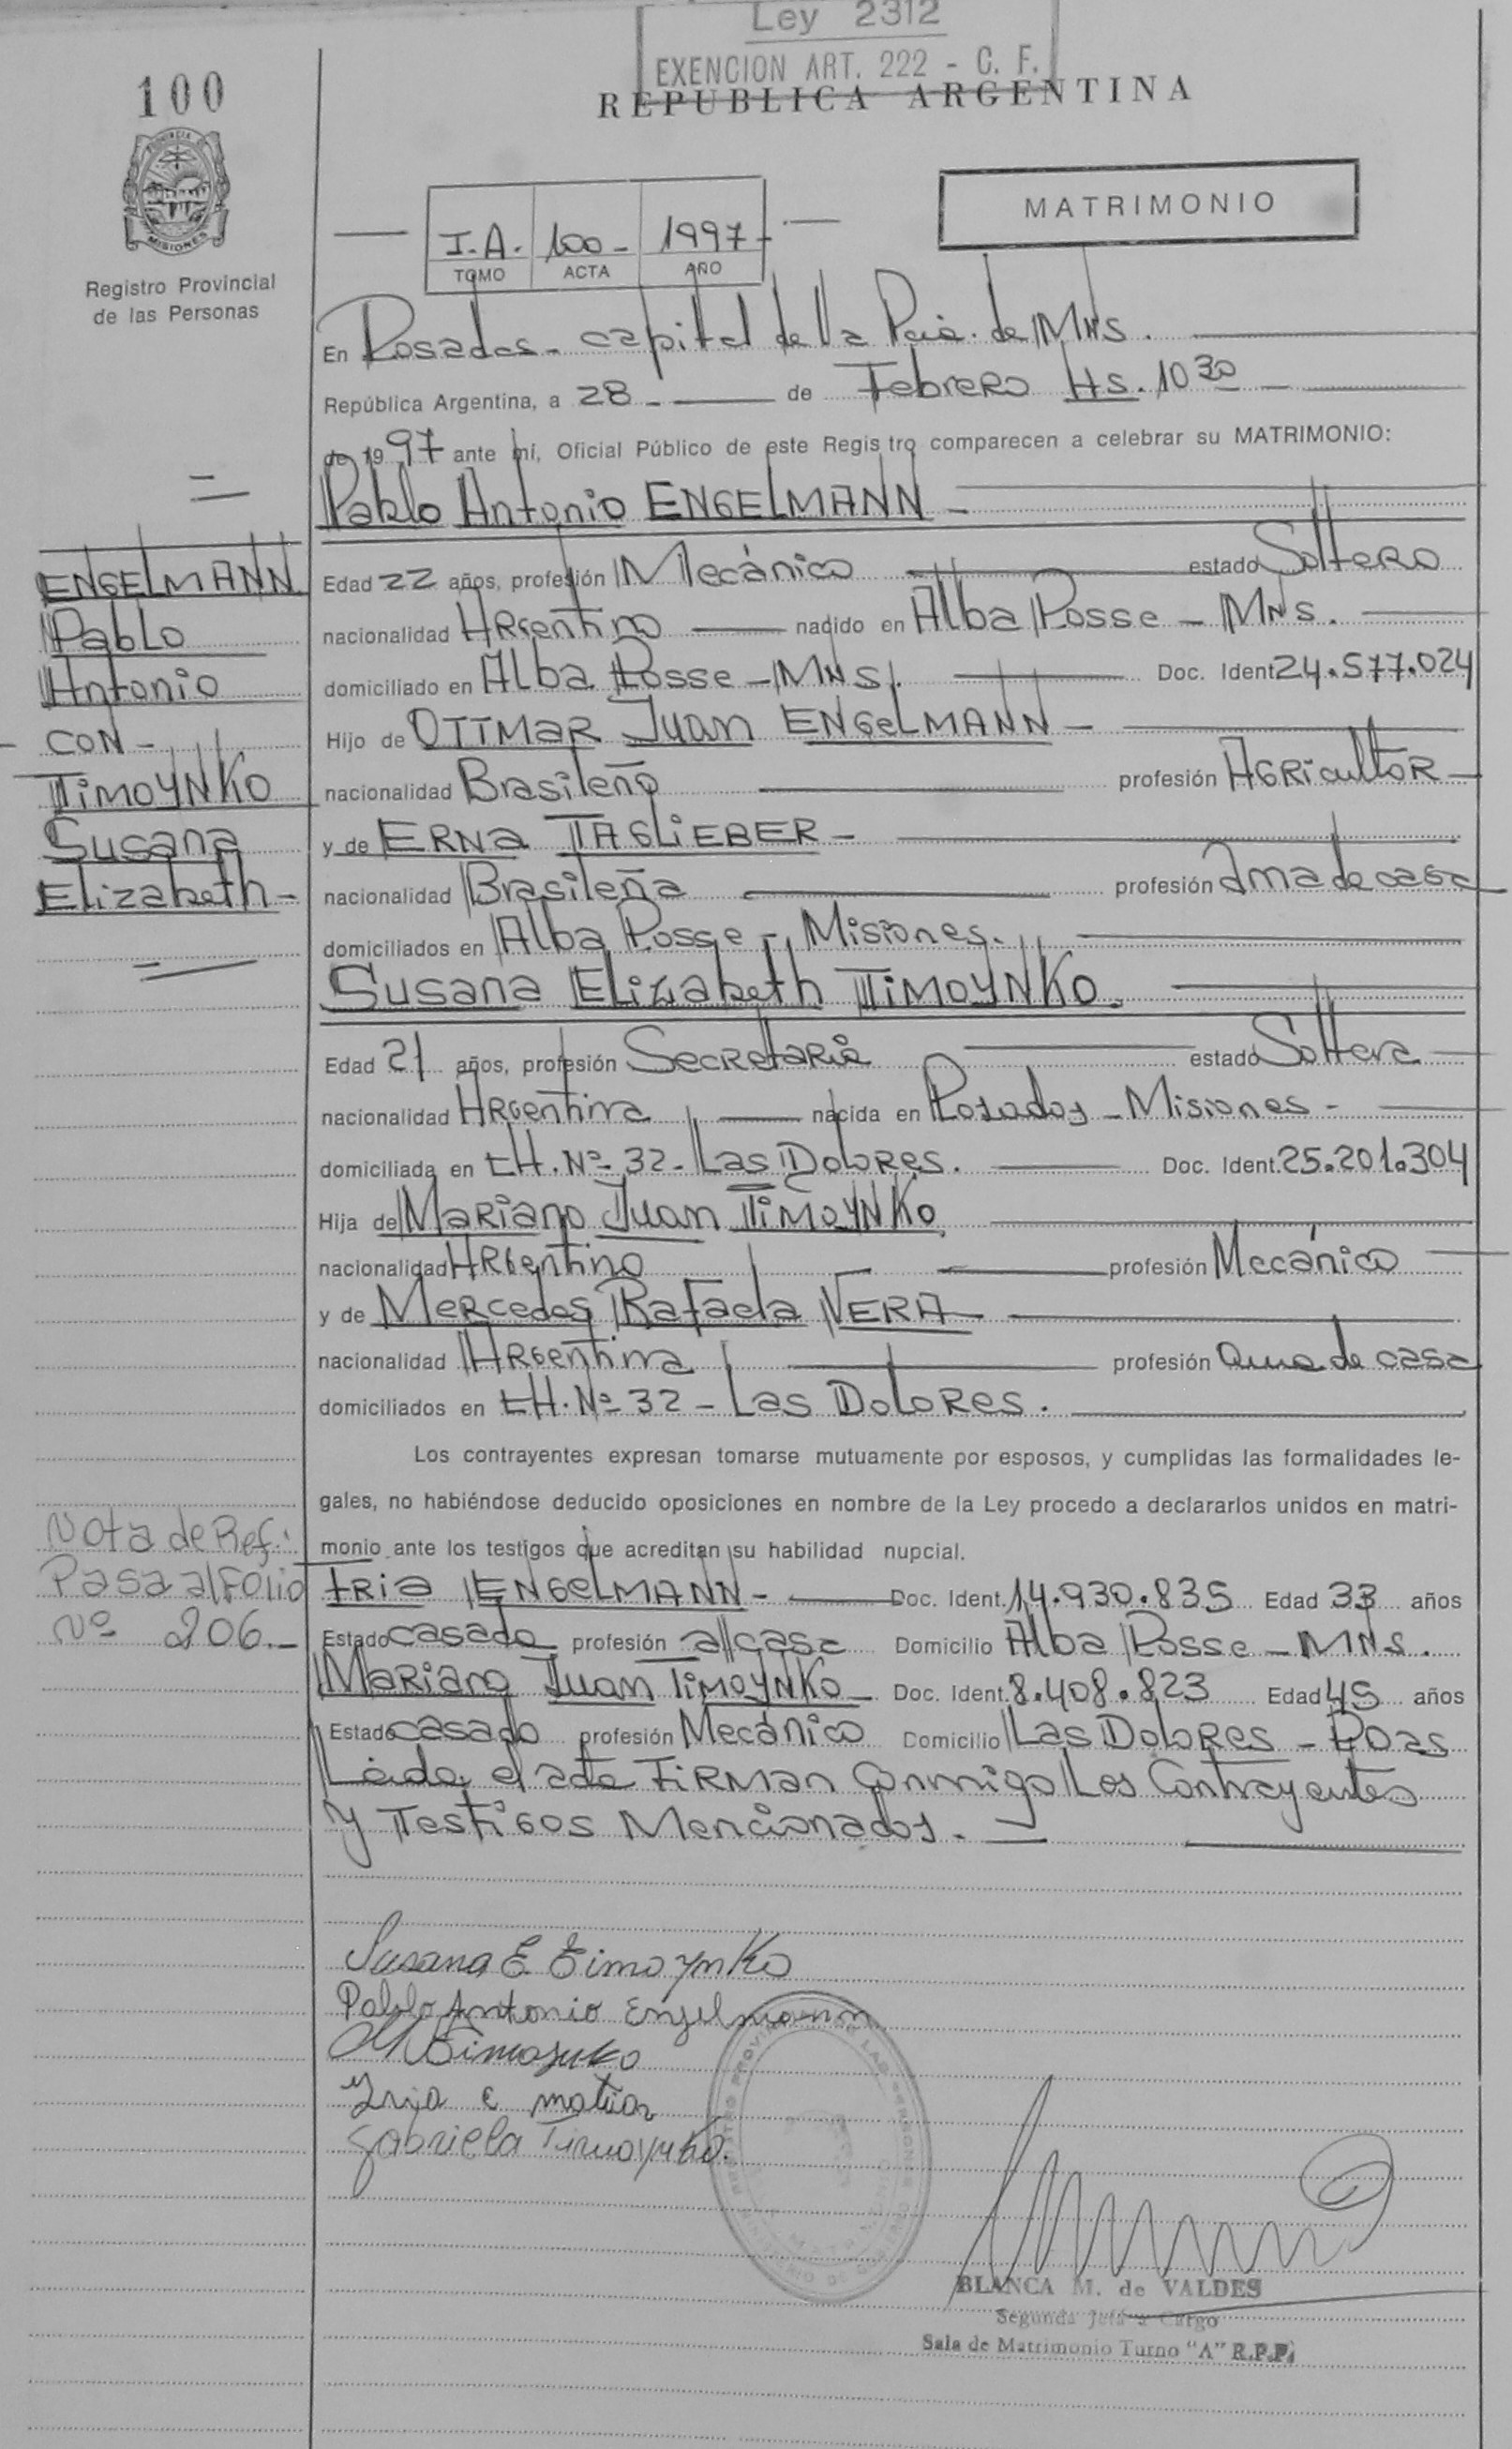 Ley 2312
EXENCION ART. 222 - C. F.
REPUBLICA ARGENTINA
100
PROVINCIA
MISIONES
Registro Provincial
de las Personas
MATRIMONIO
I.A. 100- 1997-
TOMO ACTA AÑO
En Posadas - capital de la Pcia. de MNS.
República Argentina, a 28 - de Febrero Hs. 10 30
de 1997 ante mí, Oficial Público de este Registro comparecen a celebrar su MATRIMONIO:
Pablo Antonio ENGELMANN -
ENGELMANN
Pablo
Antonio
- CON -
TIMOYNKO
Susana
Elizabeth -
Edad 22 años, profesión Mecánico estado Soltero
nacionalidad Argentino nacido en Alba Posse - MNS.
domiciliado en Alba Posse - MNS. Doc. Ident. 24.577.024
Hijo de OTTMAR Juan ENGELMANN -
nacionalidad Brasileño profesión Agricultor
y de ERNA TAGLIEBER -
nacionalidad Brasileña profesión Ama de casa
domiciliados en Alba Posse - Misiones.
Susana Elizabeth TIMOYNKO.
Edad 21 años, profesión Secretaria estado Soltera
nacionalidad Argentina nacida en Posadas - Misiones -
domiciliada en CH. Nº 32 - Las Dolores. Doc. Ident. 25.201.304
Hija de Mariano Juan TIMOYNKO
nacionalidad Argentino profesión Mecánico
y de Mercedes Rafaela VERA
nacionalidad Argentina profesión ama de casa
domiciliados en CH. Nº 32 - Las Dolores.
Los contrayentes expresan tomarse mutuamente por esposos, y cumplidas las formalidades le-
gales, no habiéndose deducido oposiciones en nombre de la Ley procedo a declararlos unidos en matri-
monio ante los testigos que acreditan su habilidad nupcial.
Nota de Ref.:
Pasa al Folio
Nº 206.-
Iria ENGELMANN - Doc. Ident. 14.930.835 Edad 33 años
Estado casada profesión a/casa Domicilio Alba Posse - MNS.
Mariano Juan TIMOYNKO - Doc. Ident. 8.408.823 Edad 45 años
Estado casado profesión Mecánico Domicilio Las Dolores - Pdas
Leida el acta FIRMAN conmigo Los Contrayentes
y Testigos Mencionados.
Susana E. Timoynko
Pablo Antonio Engelmann
Timoynko
Iria E
Gabriela Timoynko.
BLANCA M. de VALDES
Segunda Jefa a Cargo
Sala de Matrimonio Turno "A" R.P.P.